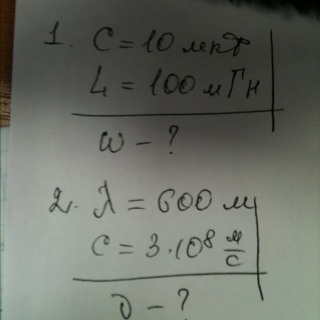 1. C = 10 мкФ
L = 100 мГн
ω - ?
2. λ = 600 м
C = 3·10⁸ м/с
ν - ?